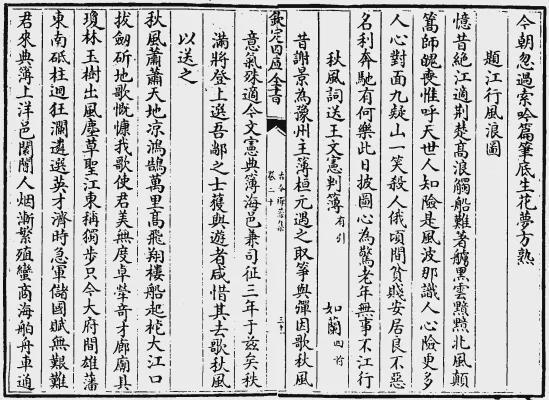 今朝忽過索吟篇筆底生花夢方熟
題江行風浪圖
憶昔絕江適荆楚高浪觸船難著艣黑雲黯黯北風顛
篙師魄喪惟呼天世人知險是風波那識人心險更多
人心對面九疑山一笑殺人俄頃間貧賤安居良不惡
名利奔馳有何樂此日披圖心為驚老年無事不江行
秋風詞送王文憲判簿有引 如蘭四首
昔謝景為豫州主簿桓元遇之取箏與彈因歌秋風
欽定四庫全書
卷二十
三十
意氣殊適今文憲典簿海邑兼司征三年于兹矣秩
滿將登上選吾鄙之士獲與遊者咸惜其去歌秋風
以送之
秋風蕭蕭天地凉鴻鵠萬里高飛翔樓船起柁大江口
拔劔斫地歌慨慷我歌使君美無度卓犖奇才廊廟具
瓊林玉樹出風塵草聖江東稱獨步只今大府間雄藩
東南砥柱迴狂瀾遴選英才濟時急軍儲國賦無艱難
君來典簿上洋邑闤闠人烟漸繁殖蠻商海舶舟車通